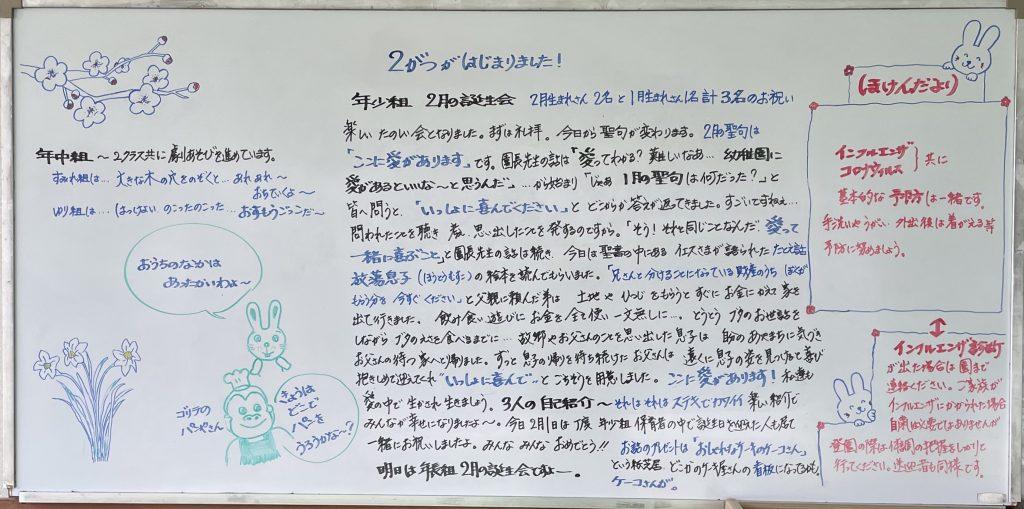 2がつがはじまりました！
年中組 〜 2クラス共に 劇あそびを進めています。
すみれ組は… 大きな木の穴をのぞくと… あれあれ〜
おちていくよ〜
ゆり組は… はっけよい のこったのこった… おすもうごっこだ〜
おうちのなかは
あったかいわよ〜
ゴリラの
パンやさん
きょうは
どこで
パンを
うろうかな〜？
年少組 2月の誕生会 2月生まれさん 2名 と 1月生まれさん1名 計 3名のお祝い
楽しい たのしい会となりました。まずは礼拝。今日から 聖句が変わります。2月の聖句は
「ここに愛があります」です。園長先生の話は「愛ってわかる？難しいなあ… 幼稚園に
愛があるといいな〜と思うんだ」…から始まり「じゃあ 1月の聖句は何だった？」と
皆へ問うと、「いっしょに喜んでください」と どこからか答えが返ってきました。すごいですねえ…
問われたことを聴き 考え 思い出したことを発するのですから。「そう！それと同じことなんだ 愛って
一緒に喜ぶこと」と園長先生の話は続き 今日は聖書の中にある イエスさまが語られた たとえ話
放蕩息子（ほうとうむすこ）の絵本を読んでもらいました。「兄さんと分けることになっている財産のうち ぼくが
もらう分を 今すぐください」と父親に頼んだ弟は 土地や ひつじをもらうと すぐにお金にかえて 家を
出て行きました。飲み食い 遊びに お金を全て使い 一文無しに…。とうとう ブタのお世話を
しながら ブタのえさを食べるまでに… 故郷やお父さんのことを思い出した息子は 自分のあやまちに気づき
お父さんの待つ家へと帰りました。ずっと息子の帰りを待ち続けたお父さんは 遠くに息子の姿を見つけて喜び
抱きしめて迎えてくれ "いっしょに喜んで"…と ごちそうを用意しました。ここに愛があります！私達も
愛の中で 生かされ 生きましょう。3人の自己紹介〜 それは それは ステキで カワイイ 楽しい紹介で
みんなが幸せになりましたよ〜。今日2月1日は丁度 年少組 保育者の中で誕生日を迎えた人も居て
一緒にお祝いしましたよ。みんな みんな おめでとう!!
お話のプレゼントは「おしゃれなケーキのケーコさん」
という紙芝居 どこかのケーキ屋さんの看板になってるかも。
ケーコさんが。
明日は年長組 2月の誕生会ですよー。
ほけんだより
インフルエンザ
コロナウィルス
共に
基本的な 予防は一緒です。
手洗いやうがい 外出後は着がえる等
予防に努めましょう。
インフルエンザ
が出た場合は園まで
連絡ください。ご家族が
インフルエンザにかかられた場合
自粛は必要ではありませんが
登園の際は体調の把握をしっかりと
行ってください。送迎者も同様です。